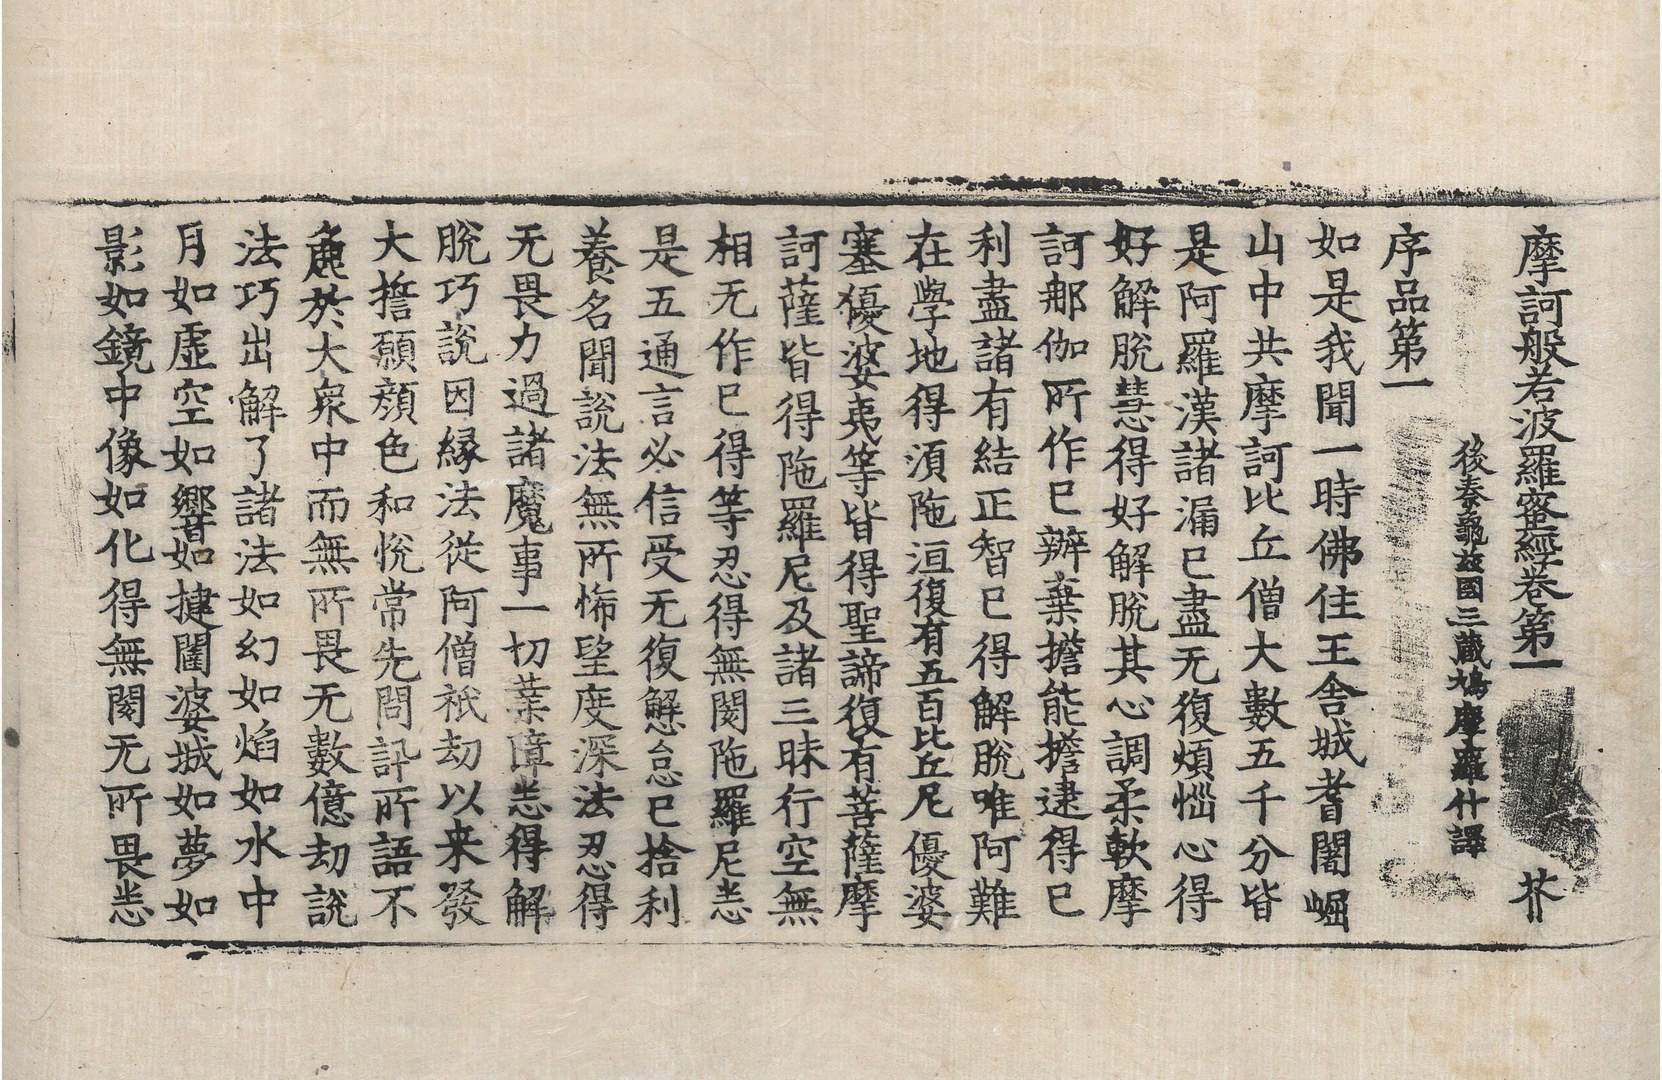 摩訶般若波羅蜜經卷第一 芥
後秦龜茲國三藏鳩摩羅什譯
序品第一
如是我聞一時佛住王舍城耆闍崛
山中共摩訶比丘僧大數五千分皆
是阿羅漢諸漏已盡无復煩惱心得
好解脫慧得好解脫其心調柔軟摩
訶那伽所作已辦棄擔能擔逮得已
利盡諸有結正智已得解脫唯阿難
在學地得須陁洹復有五百比丘尼優婆
塞優婆夷等皆得聖諦復有菩薩摩
訶薩皆得陁羅尼及諸三昧行空無
相无作已得等忍得無閡陁羅尼悉
是五通言必信受无復懈怠已捨利
養名聞說法無所悕望度深法忍得
无畏力過諸魔事一切業障悉得解
脫巧說因緣法從阿僧祇劫以来發
大誓願顏色和悅常先問訊所語不
麁於大衆中而無所畏无數億劫說
法巧出解了諸法如幻如焰如水中
月如虛空如響如揵闥婆城如夢如
影如鏡中像如化得無閡无所畏悉